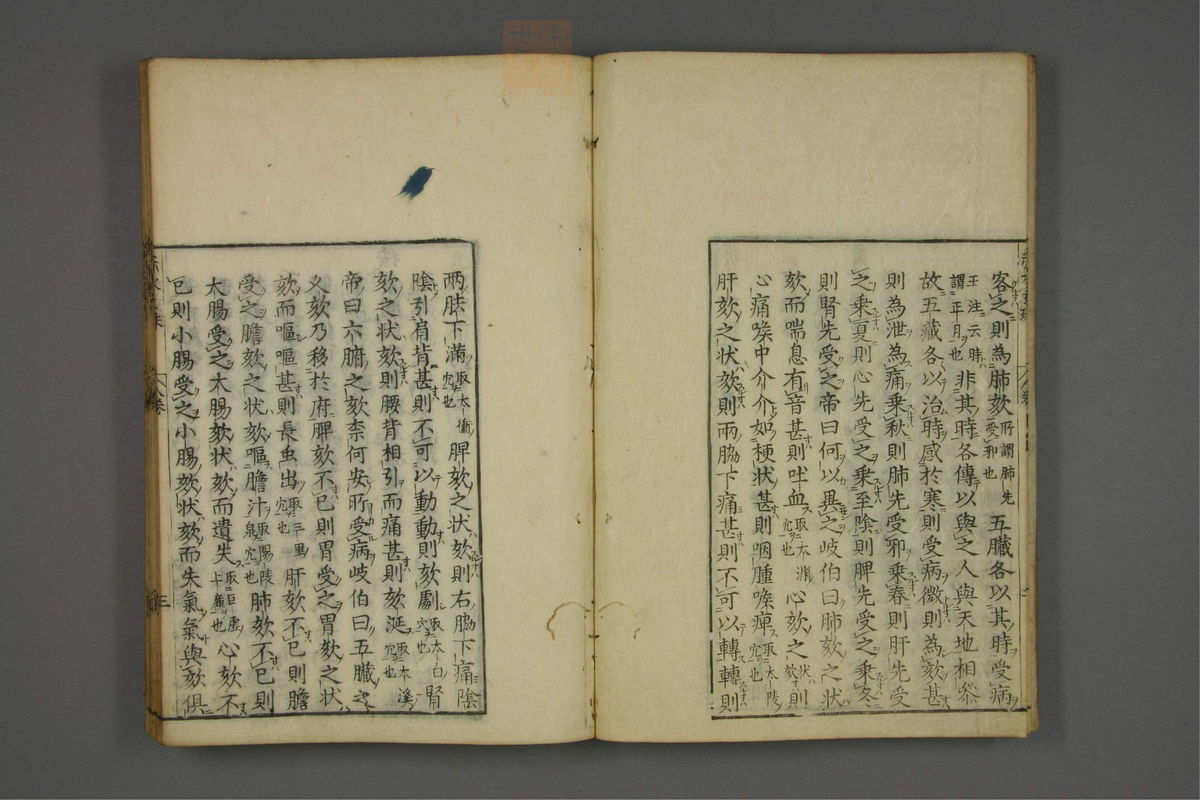 客之則為肺欬所謂肺先受邪也五臓各以其時受病
王注云時謂正月也非其時各傳以與之人與天地相參
故五藏各以治時感於寒則受病微則為欬甚
則為泄為痛乗秋則肺先受邪乗春則肝先受
之乗夏則心先受之乗至陰則脾先受之乗冬
則腎先受之帝曰何以異之岐伯曰肺欬之状
欬而喘息有音甚則吐血取太淵穴也心欬之状欬則
心痛喉中介介如梗状甚則咽腫喉痺取太陵穴也
肝欬之状欬則兩脇下痛甚則不可以轉轉則
兩胠下滿取太衝穴也脾欬之状欬則右脇下痛陰
陰引肩背甚則不可以動動則欬劇取太白穴也腎
欬之状欬則腰背相引而痛甚則欬涎取太溪穴也
帝曰六腑之欬柰何安所受病岐伯曰五臓之
乆欬乃移於府脾欬不已則胃受之胃欬之状
欬而嘔嘔甚則長虫出取三里穴也肝欬不已則膽
受之膽欬之状欬嘔膽汁取陽陵泉穴也肺欬不已則
大腸受之大腸欬状欬而遺失取巨虚上廉也心欬不
已則小腸受之小腸欬状欬而失氣氣與欬俱